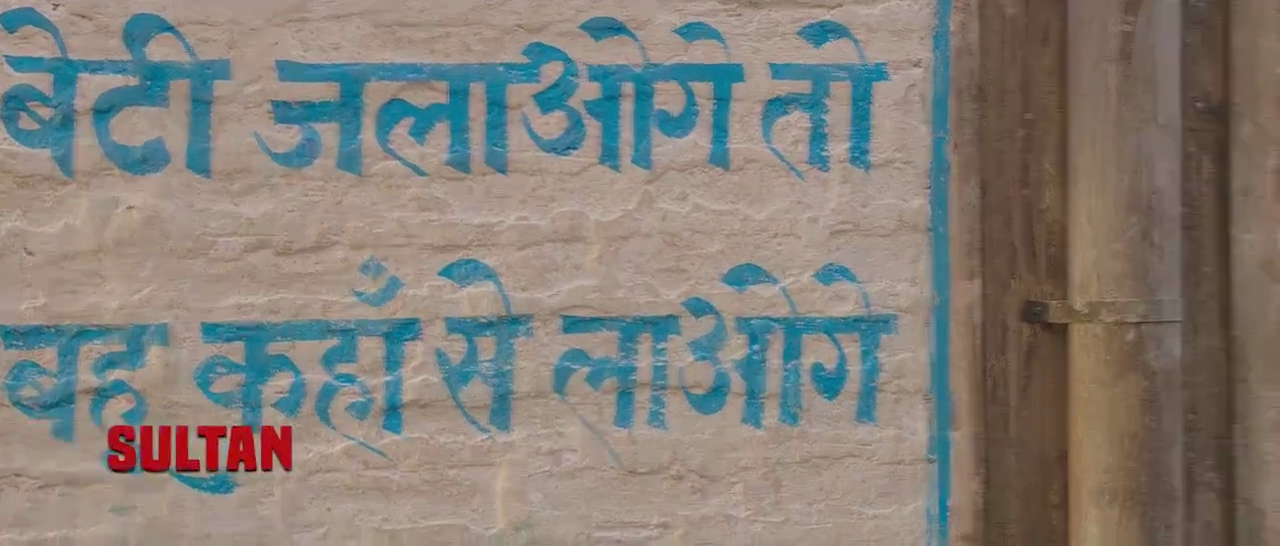 बेटी जलाओगे तो
बहू कहाँ से लाओगे
SULTAN